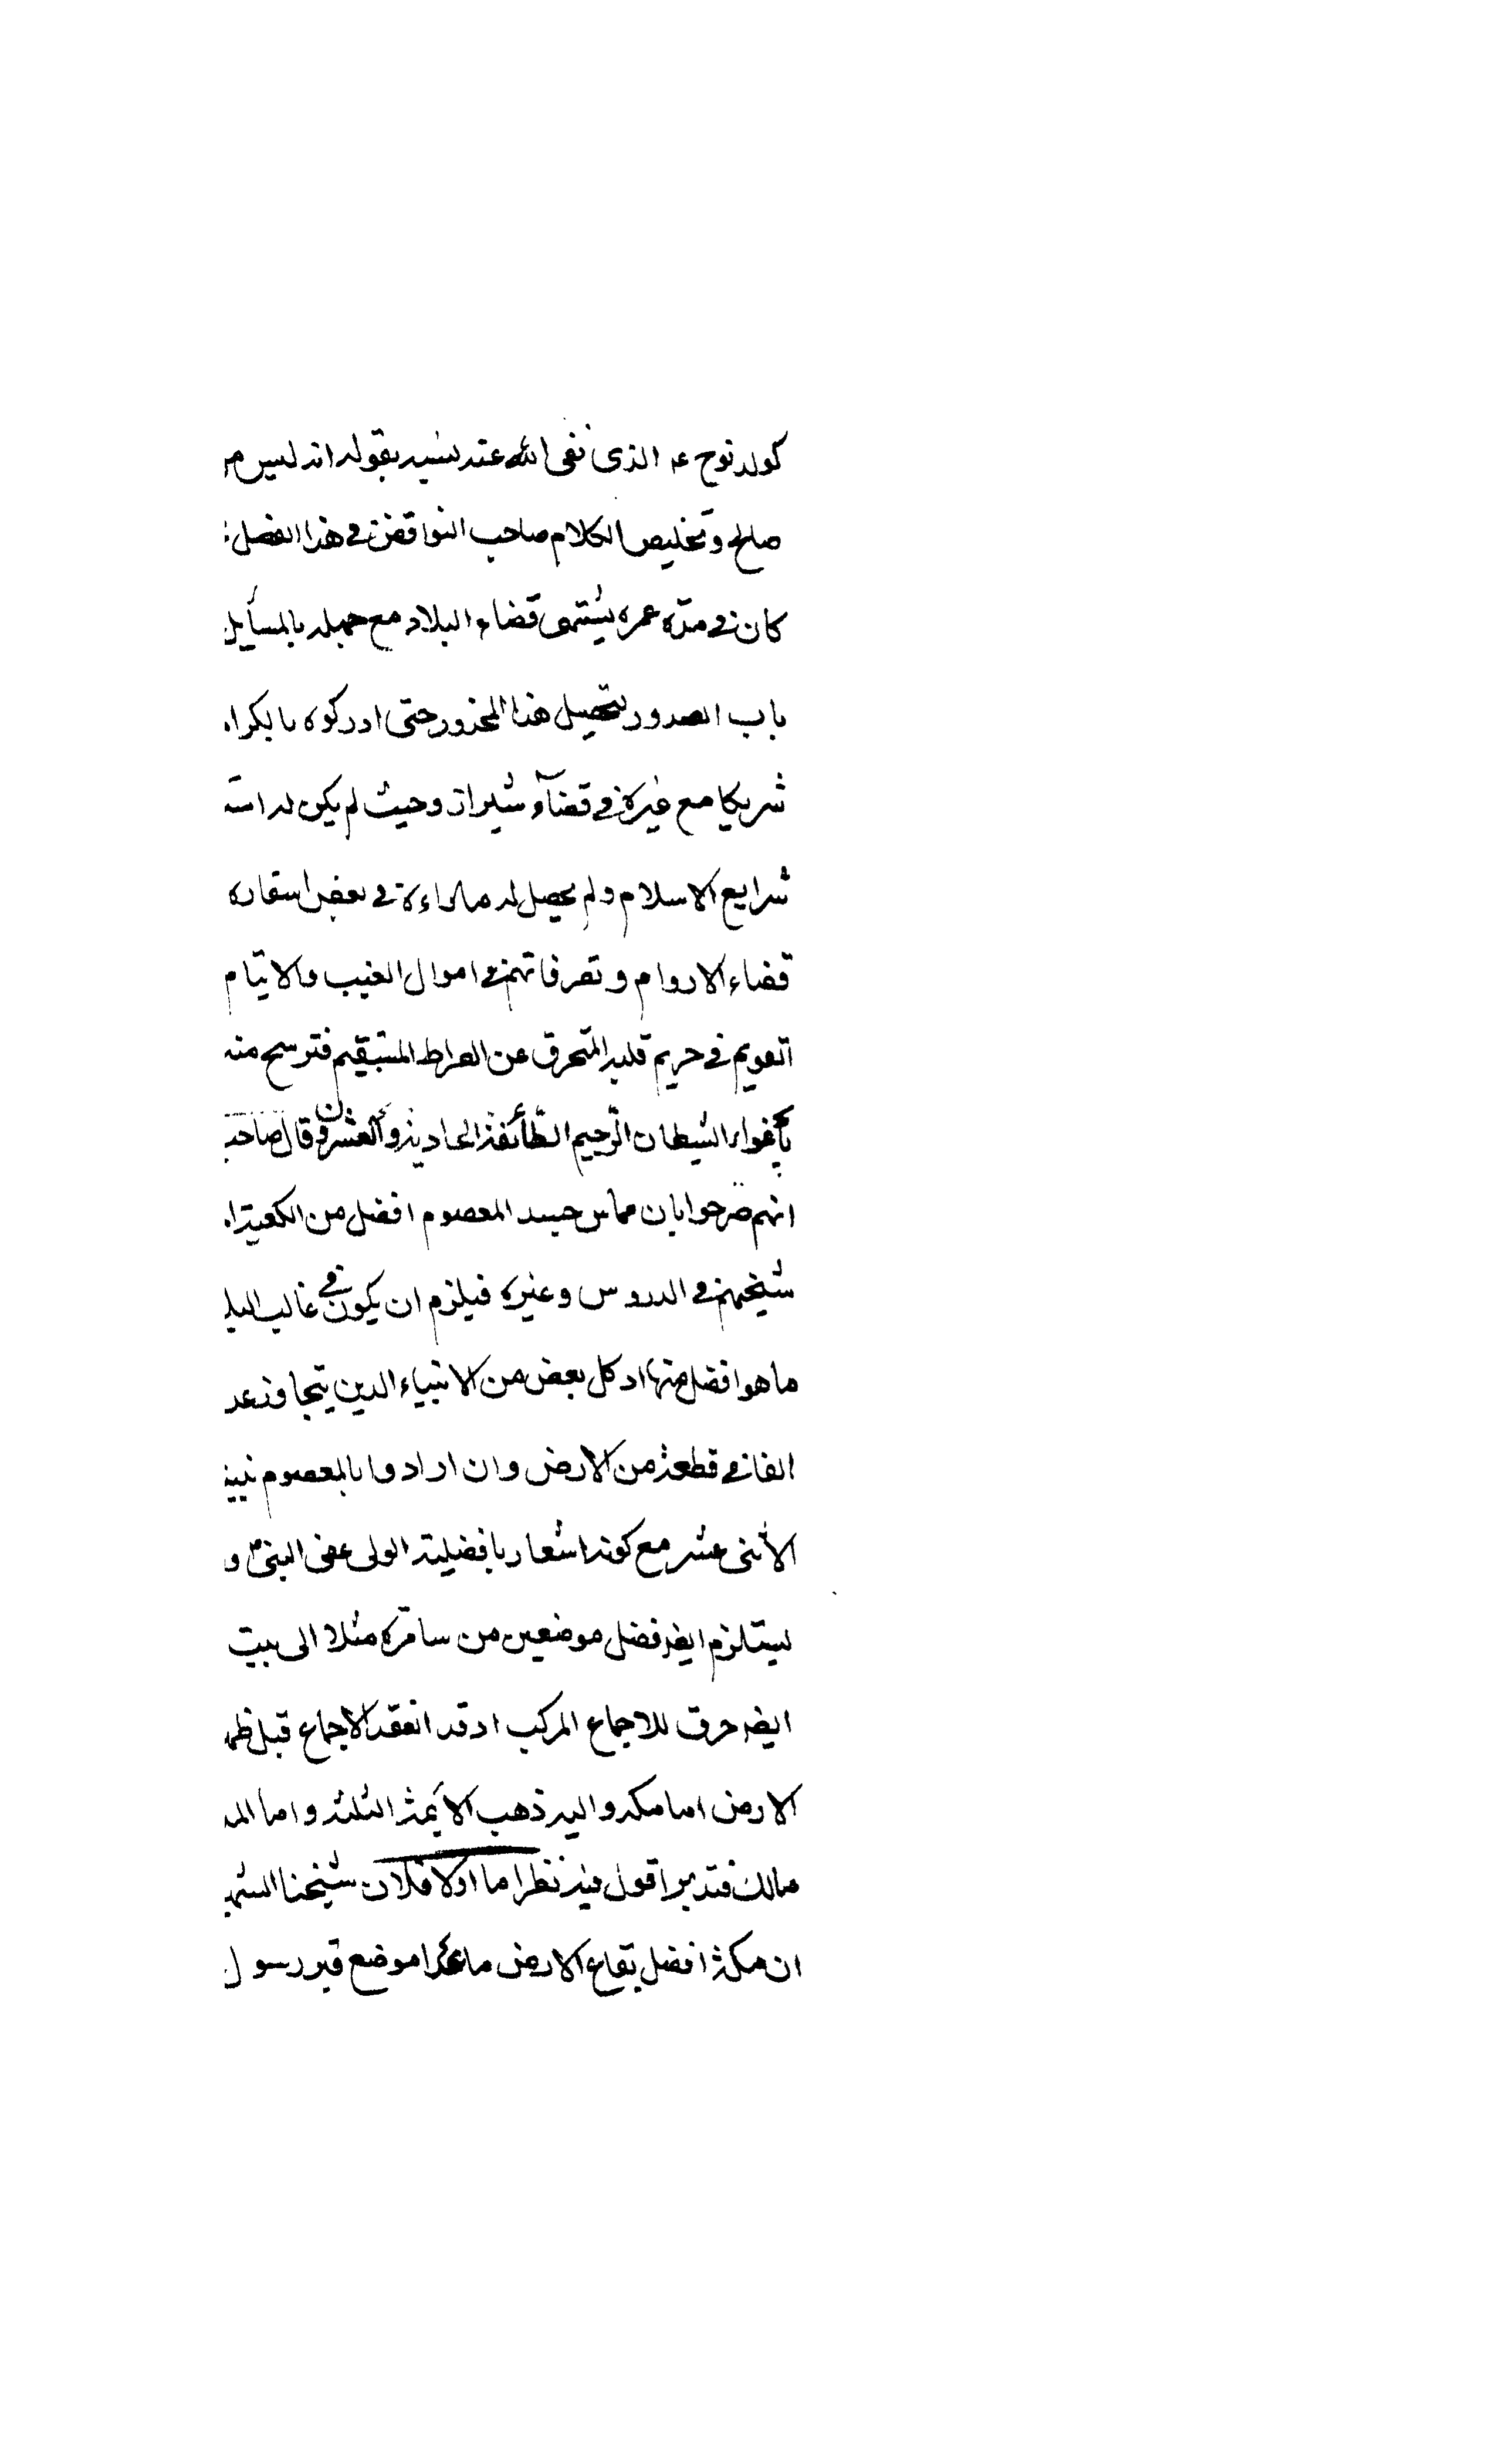 كولد نوح عم الذى نفى الله عنه بنيه بقوله انه ليس من
صالح وتخليص الكلام صاحب النواقض فى هذا الفصل
كان فى مدّة عمره يشتهى قضاء البلاد مع جهله بالمسآيل
باب الصدور لتحصيل هذا المحذور حتى ادركوه بالكرا
شريكا مع غيره فى قضآء شيراز وحيث لم يكن له است
شرايع الاسلام ولم يحصل له فى بعض اسفاره
قضاء الاروام وتصرفاتهم فى اموال الغيب والايتام
القويم فى حريم قلبه المتحرق عن الصراط المستقيم فترسح منه
باغواء الشيطان الرّجيم الطّائفة الحادية والعشرون قال صاحب
انهم صرّحوا بان مماس جسد المعصوم افضل من الكعبة
شيخهم فى الدروس وغيره فيلزم ان يكون فى غالب البلا
ما هو افضل منها اد كل بعض من الانبياء الدين يتجاوز عد
الفا فى قطعة من الارض وان ارادوا بالمعصوم نبينا
الأثنى عشر مع كونه اشعار بافضلية الولى على النبى ص و
يستلزم ايضه فضل موضعين من سامّره مثلا الى بيت
ايضه خرق للاجماع المركب اد قد انعقد الاجماع قبل ظه
الارض اما مكه واليه ذهب الأيمة الثلثه واما المد
مالك فتدبر اقول فيه نظر اما اولا فلان شيخنا الشه
ان مكة افضل بقاع الارض ما عدا موضع قبر رسول